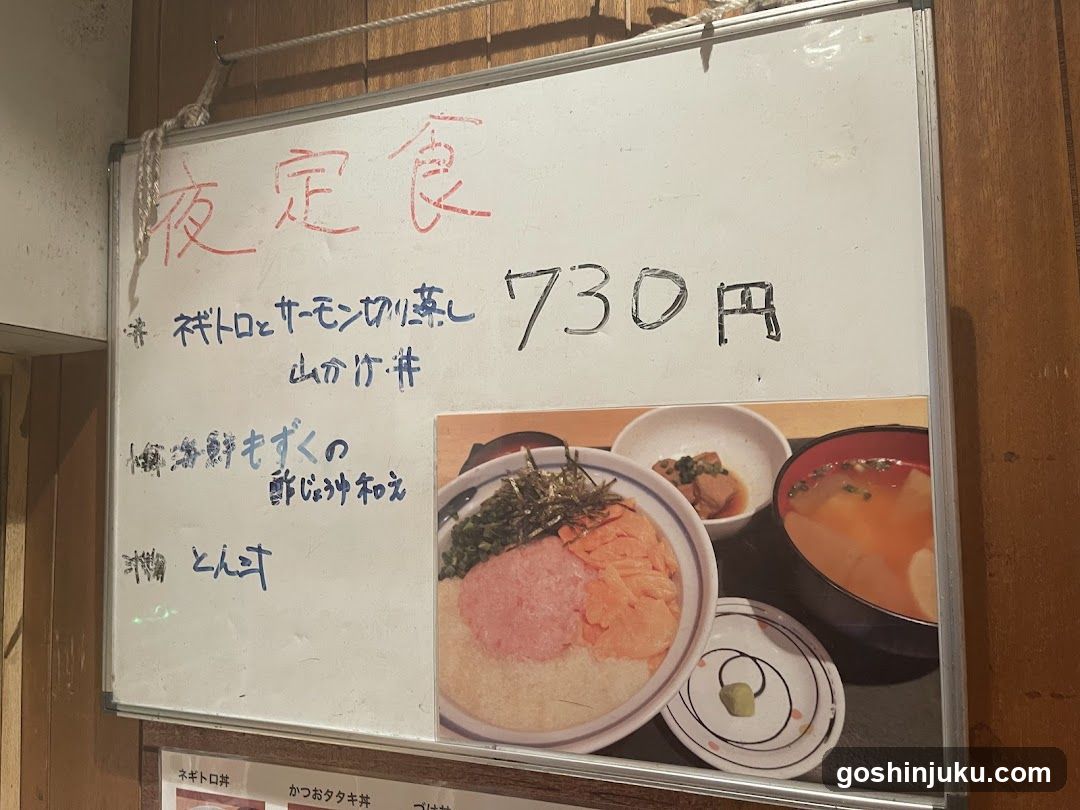 夜定食
丼 ネギトロとサーモン切り落し
山かけ丼
730円
海鮮もずくの
酢じょうゆ和え
とん汁
ネギトロ丼
かつおタタキ丼
づけ丼
goshinjuku.com